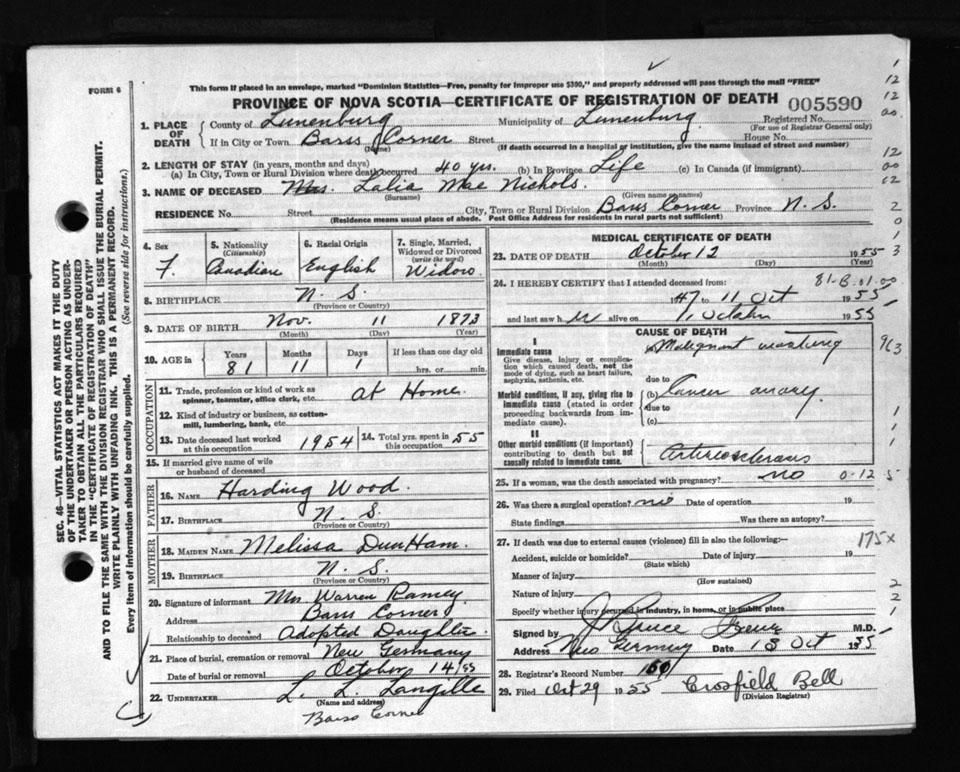 FORM 6
This form if placed in an envelope, marked "Dominion Statistics—Free, penalty for improper use $300," and properly addressed will pass through the mail "FREE"
PROVINCE OF NOVA SCOTIA—CERTIFICATE OF REGISTRATION OF DEATH 005590
1. PLACE OF DEATH County of Lunenburg Municipality of Lunenburg Registered No.
(For use of Registrar General only)
If in City or Town Barss Corner Street House No.
(Name) (If death occurred in a hospital or institution, give the name instead of street and number)
2. LENGTH OF STAY (in years, months and days)
(a) In City, Town or Rural Division where death occurred 40 yrs. (b) In Province Life (c) In Canada (if immigrant)
3. NAME OF DECEASED Mrs. Lalia Mae Nichols.
(Surname) (Given name or names)
RESIDENCE No. Street City, Town or Rural Division Barss Corner Province N. S.
(Residence means usual place of abode. Post Office Address for residents in rural parts not sufficient)
4. Sex F.
5. Nationality (Citizenship) Canadian
6. Racial Origin English
7. Single, Married, Widowed or Divorced (write the word) Widow
8. BIRTHPLACE N. S.
(Province or Country)
9. DATE OF BIRTH Nov. 11 1873
(Month) (Day) (Year)
10. AGE in Years Months Days If less than one day old
81 11 1 hrs. or min.
OCCUPATION
11. Trade, profession or kind of work as spinner, teamster, office clerk, etc. at Home
12. Kind of industry or business, as cotton-mill, lumbering, bank, etc.
13. Date deceased last worked at this occupation 1954
14. Total yrs. spent in this occupation 55
15. If married give name of wife or husband of deceased
FATHER
16. NAME Harding Wood.
17. BIRTHPLACE N. S.
(Province or Country)
MOTHER
18. MAIDEN NAME Melissa DunHam.
19. BIRTHPLACE N. S.
(Province or Country)
20. Signature of informant Mrs Warren Ramey
Address Barss Corner
Relationship to deceased Adopted Daughter.
21. Place of burial, cremation or removal New Germany
Date of burial or removal October 14 55
22. UNDERTAKER L. L. Langille
(Name and address)
Barss Corner
MEDICAL CERTIFICATE OF DEATH
23. DATE OF DEATH October 12 1955
(Month) (Day) (Year)
24. I HEREBY CERTIFY that I attended deceased from:
81-B.01.00
1947 to 11 Oct 1955
and last saw h alive on 1955
CAUSE OF DEATH
I
Immediate cause
Give disease, injury or complication which caused death, not the mode of dying, such as heart failure, asphyxia, asthenia, etc.
Malignant
due to
Morbid conditions, if any, giving rise to immediate cause (stated in order proceeding backwards from immediate cause)
(b) Cancer
due to
(c)
II
Other morbid conditions (if important) contributing to death but not causally related to immediate cause.
Arteriosclerosis
25. If a woman, was the death associated with pregnancy? no
26. Was there a surgical operation? no Date of operation 19
State findings Was there an autopsy?
27. If death was due to external causes (violence) fill in also the following:—
175x
Accident, suicide or homicide? Date of injury 19
(State which)
Manner of injury
(How sustained)
Nature of injury
Specify whether injury occurred in industry, in home, or in public place
Signed by M.D.
Address New Germany Date 13 Oct 1955
28. Registrar's Record Number 150
29. Filed Oct 29 1955 Crosfield Bell
(Division Registrar)
SEC. 46—VITAL STATISTICS ACT MAKES IT THE DUTY
OF THE UNDERTAKER OR PERSON ACTING AS UNDER-
TAKER TO OBTAIN ALL THE PARTICULARS REQUIRED
IN THE "CERTIFICATE OF REGISTRATION OF DEATH"
AND TO FILE THE SAME WITH THE DIVISION REGISTRAR WHO SHALL ISSUE THE BURIAL PERMIT.
WRITE PLAINLY WITH UNFADING INK. THIS IS A PERMANENT RECORD.
Every item of information should be carefully supplied. (See reverse side for instructions.)